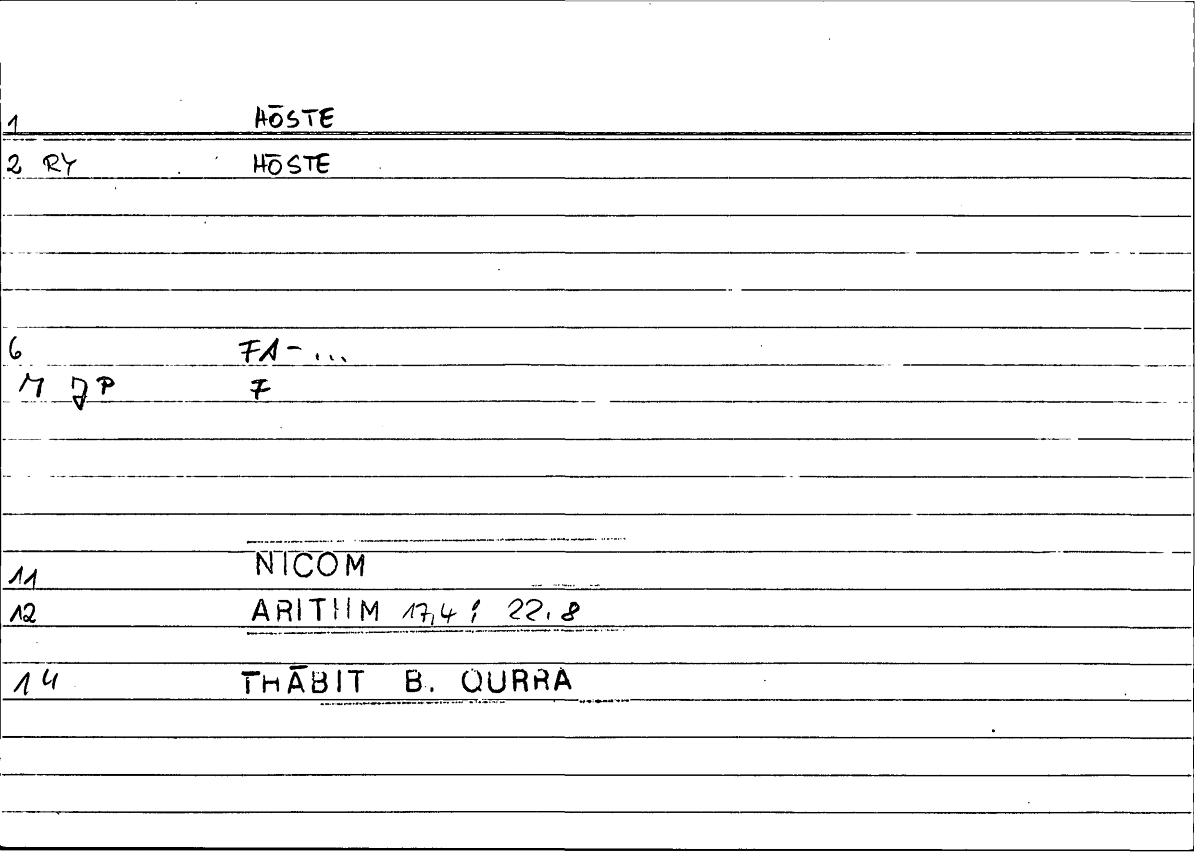 1 HŌSTE
2 RY HŌSTE
6 FA-...
F
11 NICOM
12 ARITHM 17,4; 22,8
14 THĀBIT B. QURRA